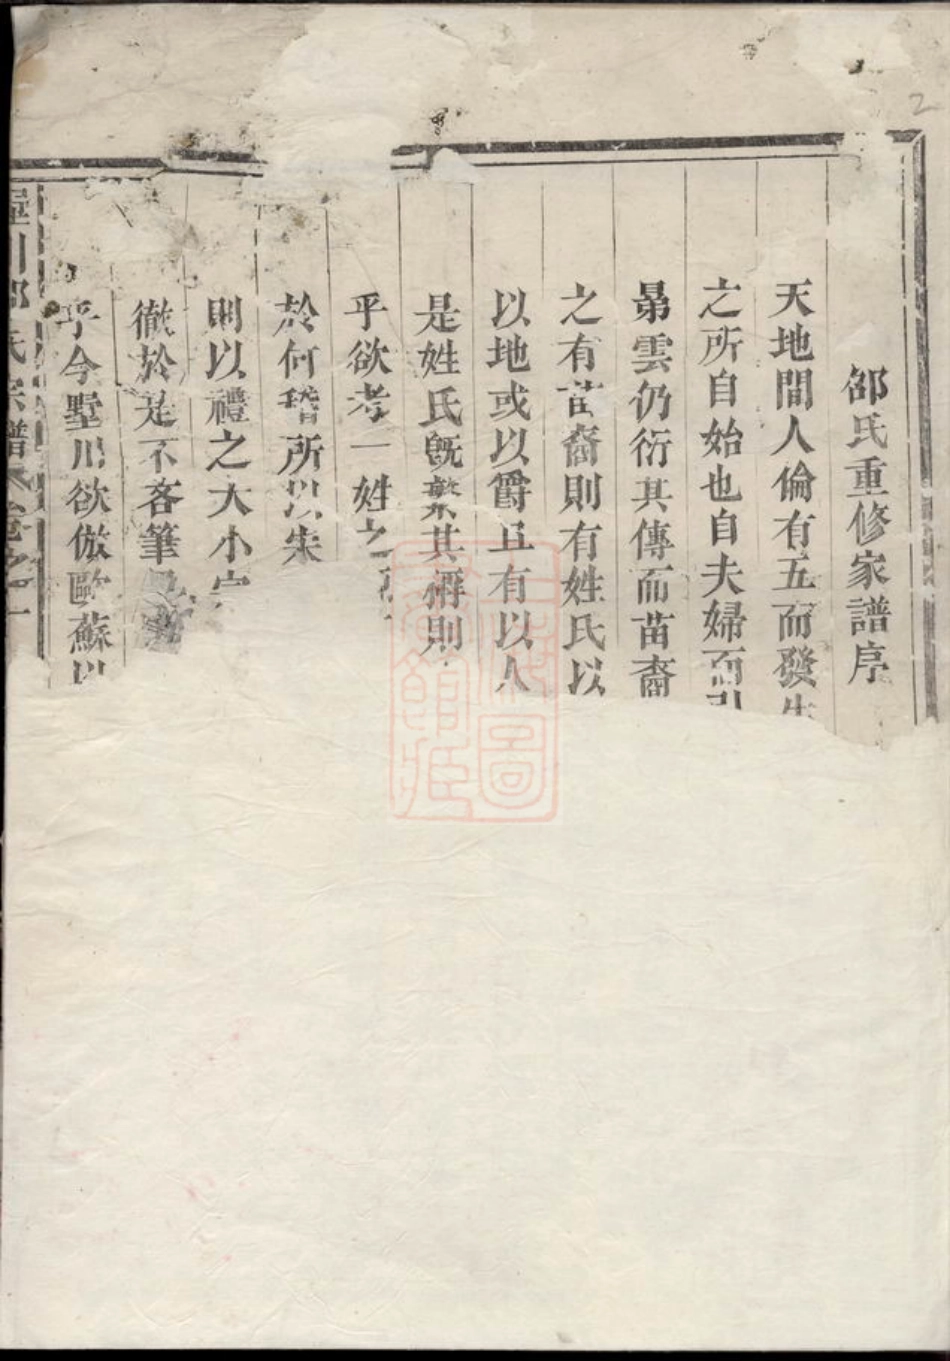 邵氏重修家譜序
天地間人倫有五而發生
之所自始也自夫婦而
晜雲仍衍其傳而苗裔
之有苗裔則有姓氏以
以地或以爵且有以人
是姓氏既繁其禰則
乎欲考一姓之
於何稽所以朱
則以禮之大小宗
徹於是不吝筆
乎今墅川欲倣歐蘇以
墅川邵氏宗譜 卷之一